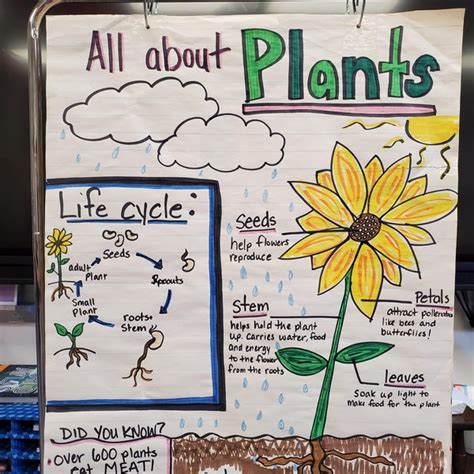 All about Plants
Life cycle:
Seeds
Sprouts
roots+
Stem
Small
Plant
adult
Plant
Seeds
help flowers
reproduce
Stem
helps hold the plant
up. carries water, food
and energy
to the flower
from the roots
Petals
attract pollenators
like bees and
butterflies!
leaves
Soak up light to
make food for the plant
DID YOU KNOW?
over 600 plants
eat MEAT!